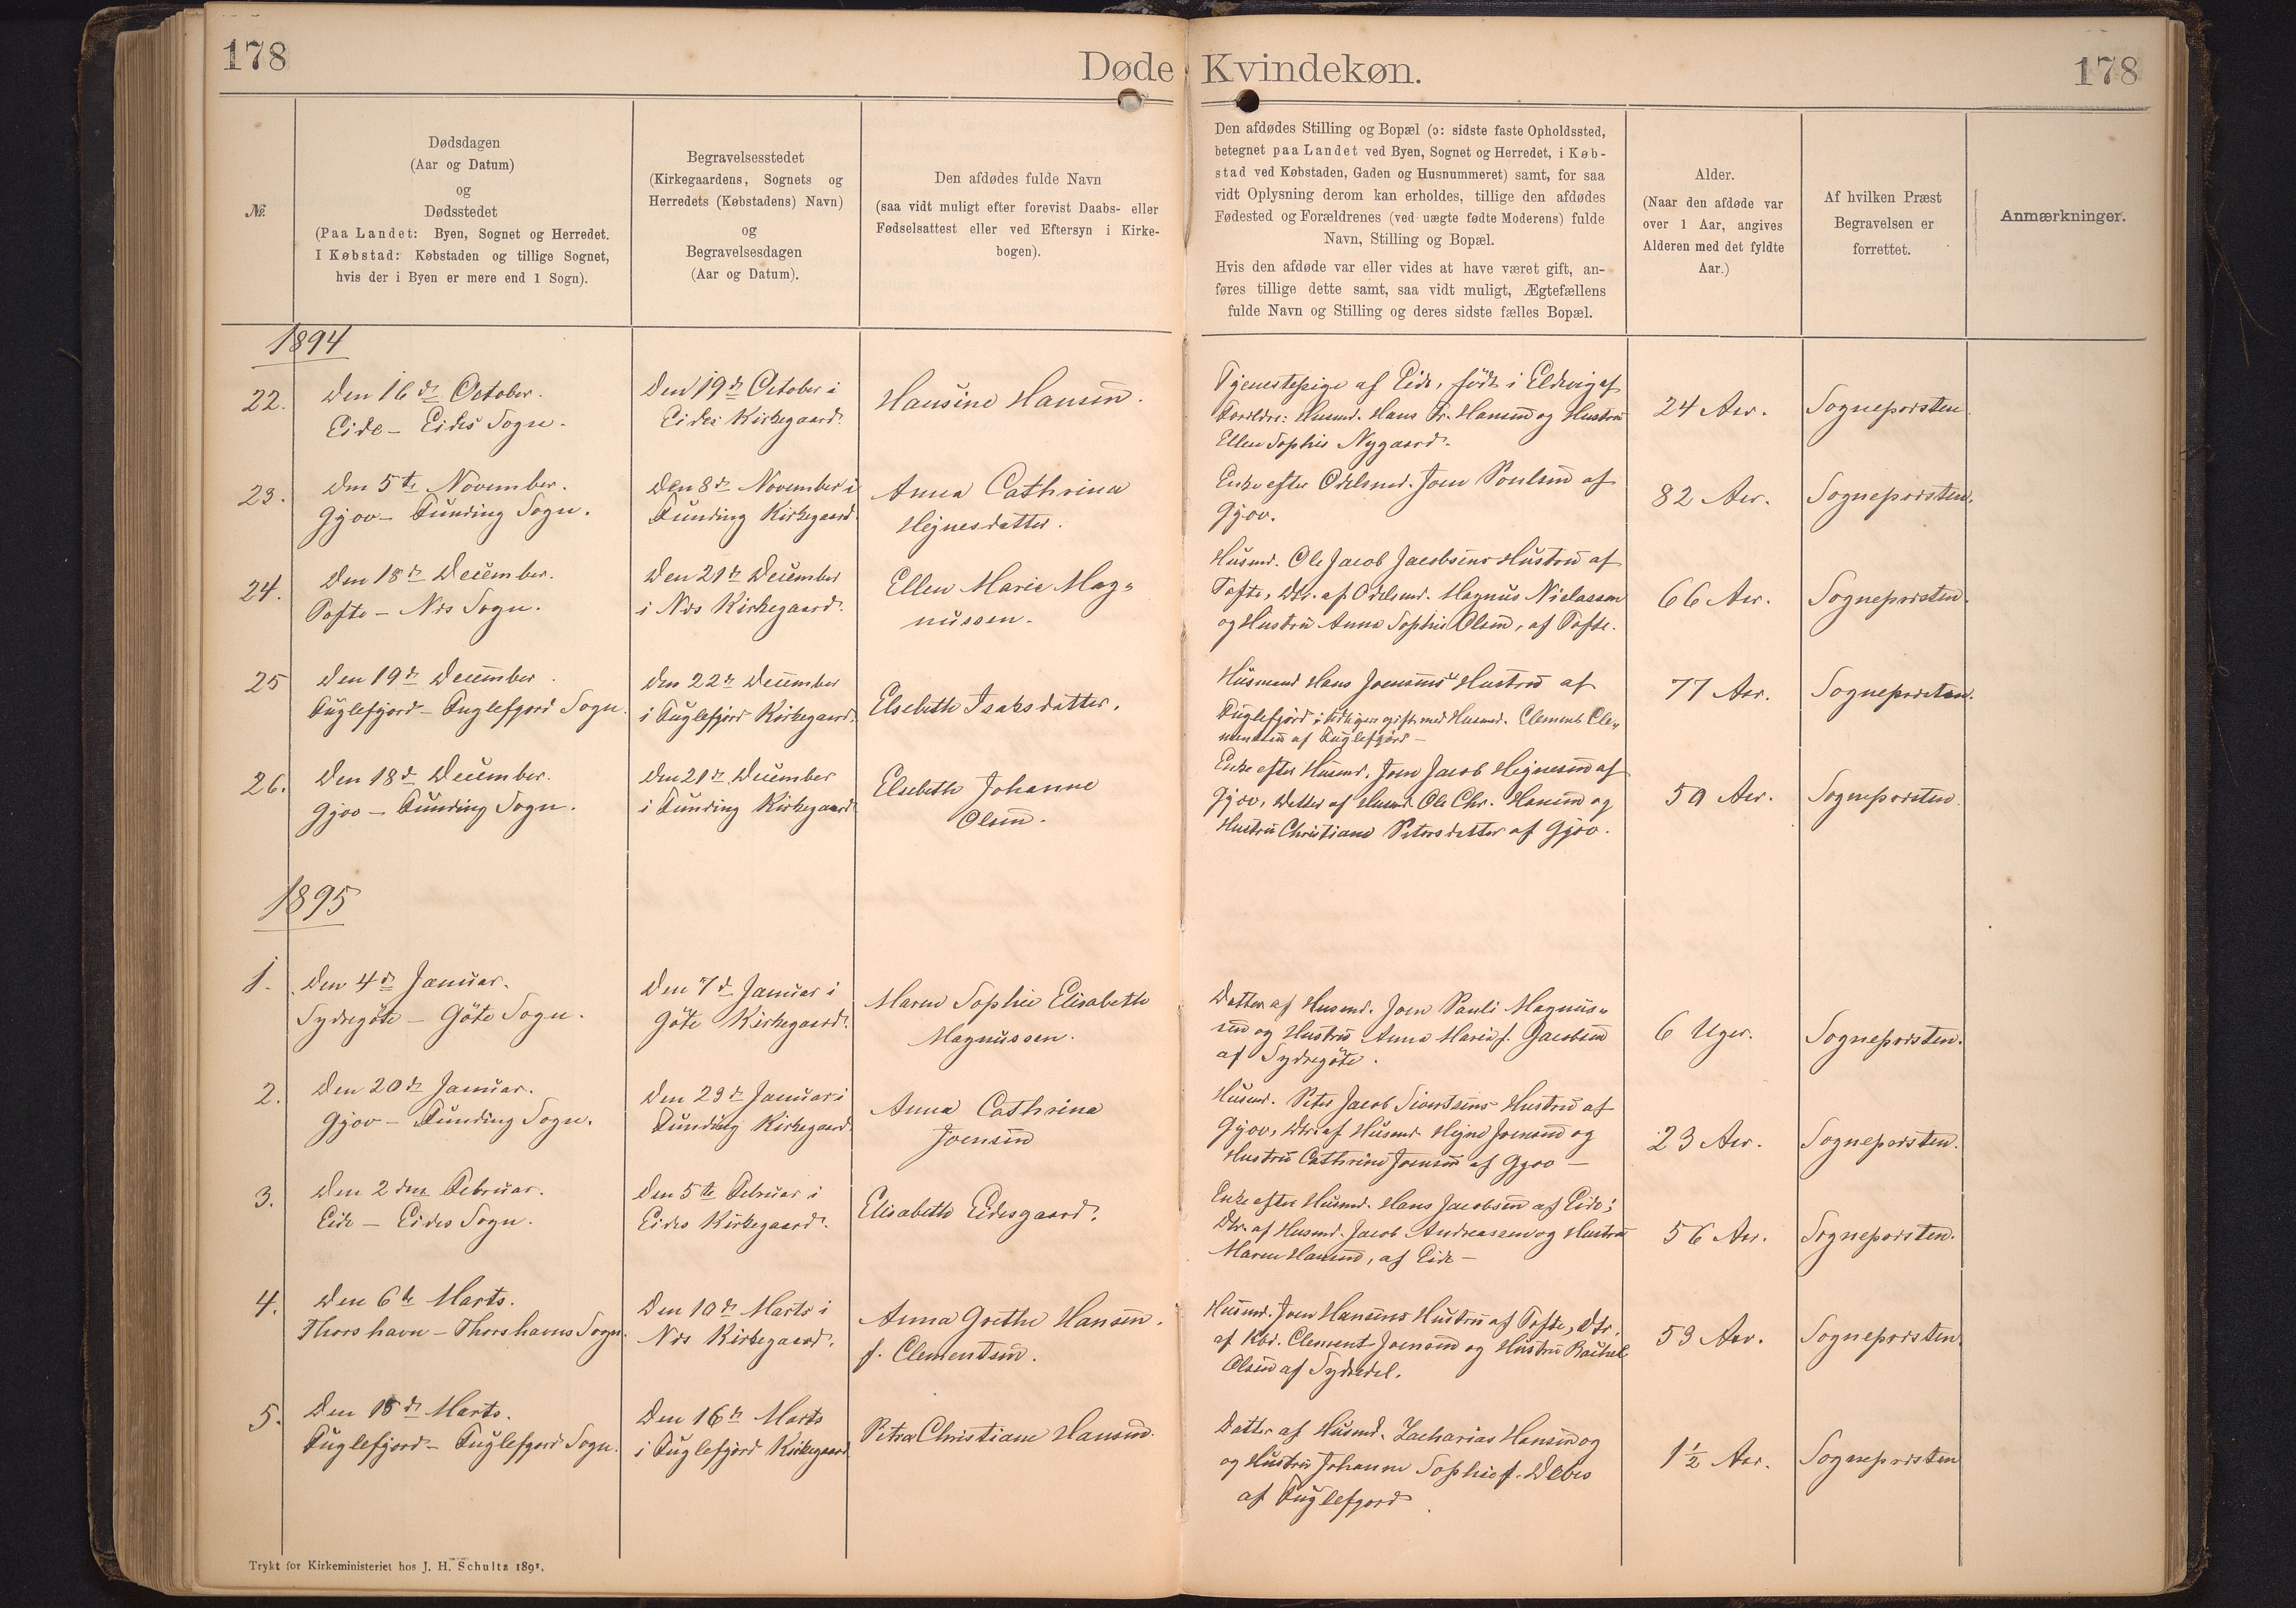 178
Døde Kvindekøn.
178
№
Dødsdagen
(Aar og Datum)
og
Dødsstedet
(Paa Landet: Byen, Sognet og Herredet.
I Købstad: Købstaden og tillige Sognet,
hvis der i Byen er mere end 1 Sogn).
Begravelsesstedet
(Kirkegaardens, Sognets og
Herredets (Købstadens) Navn)
og
Begravelsesdagen
(Aar og Datum).
Den afdødes fulde Navn
(saa vidt muligt efter forevist Daabs- eller
Fødselsattest eller ved Eftersyn i Kirke-
bogen).
Den afdødes Stilling og Bopæl (ɔ: sidste faste Opholdssted,
betegnet paa Landet ved Byen, Sognet og Herredet, i Køb-
stad ved Købstaden, Gaden og Husnummeret) samt, for saa
vidt Oplysning derom kan erholdes, tillige den afdødes
Fødested og Forældrenes (ved uægte fødte Moderens) fulde
Navn, Stilling og Bopæl.
Hvis den afdøde var eller vides at have været gift, an-
føres tillige dette samt, saa vidt muligt, Ægtefællens
fulde Navn og Stilling og deres sidste fælles Bopæl.
Alder.
(Naar den afdøde var
over 1 Aar, angives
Alderen med det fyldte
Aar.)
Af hvilken Præst
Begravelsen er
forrettet.
Anmærkninger.
1894
22.
Den 16de October.
Eide – Eides Sogn.
Den 19de October i
Eides Kirkegaard.
Hansine Hansen.
Tjenestepige af Eide, født i Eldevig af
Forældre: Husmd. Hans Fr. Hansen og Hustru
Ellen Sophie Nygaard.
24 Aar.
Sognepræsten
23.
Den 5te November.
Gjov – Funding Sogn.
Den 8de November i
Funding Kirkegaard.
Anna Cathrina
Hejnesdatter.
Enke efter Odelsmd. Joen Poulsen af
Gjov.
82 Aar.
Sognepræsten.
24.
Den 18de December.
Tofte – Nes Sogn.
Den 21de December
i Nes Kirkegaard.
Ellen Marie Mag-
nussen.
Husmd. Ole Jacob Jacobsens Hustru af
Tofte, Dtr. af Odelsmd. Magnus Niclassen
og Hustru Anna Sophie Olsen, af Tofte.
66 Aar.
Sognepræsten.
25
Den 19de December.
Fuglefjord – Fuglefjord Sogn.
Den 22de December
i Fuglefjord Kirkegaard.
Elsebeth Isaksdatter.
Husmand Hans Joensens Hustru af
Fuglefjord; tidligere gift med Husmd. Clement Cle-
mentsen af Fuglefjord –
77 Aar.
Sognepræsten.
26.
Den 18de December.
Gjov – Funding Sogn.
Den 21de December
i Funding Kirkegaard.
Elsebeth Johanne
Olsen.
Enke efter Husmd. Joen Jacob Hejnesen af
Gjov, Datter af Husmd. Ole Chr. Hansen og
Hustru Christiane Petersdatter af Gjov.
50 Aar.
Sognepræsten.
1895
1.
Den 4de Januar.
Sydregöte – Göte Sogn.
Den 7de Januar i
Göte Kirkegaard.
Maren Sophie Elisabeth
Magnussen.
Datter af Husmd. Joen Pauli Magnus-
sen og Hustru Anna Marie f. Jacobsen
af Sydregöte.
6 Uger.
Sognepræsten.
2.
Den 20de Januar.
Gjov – Funding Sogn.
Den 23de Januar i
Funding Kirkegaard.
Anna Cathrina
Joensen
Husmd. Peter Jacob Sivertsens Hustru af
Gjov, Dtr. af Husmd. Hejne Joensen og
Hustru Cathrine Joensen af Gjov –
23 Aar.
Sognepræsten.
3.
Den 2den Februar.
Eide – Eides Sogn.
Den 5te Februar i
Eides Kirkegaard.
Elisabeth Eidesgaard.
Enke efter Husmd. Hans Jacobsen af Eide;
Dtr. af Husmd. Jacob Andreassen og Hustru
Maren Hansen, af Eide –
56 Aar.
Sognepræsten.
4.
Den 6te Marts.
Thorshavn – Thorshavns Sogn.
Den 10de Marts i
Nes Kirkegaard.
Anna Grethe Hansen.
f. Clementsen.
Husmd. Joen Hansens Hustru af Tofte, Dtr.
af Kbd. Clement Joensen og Hustru Rachel
Olsen af Sydredel.
53 Aar.
Sognepræsten.
5.
Den 13de Marts.
Fuglefjord – Fuglefjord Sogn.
Den 16de Marts
i Fuglefjord Kirkegaard
Petra Christiane Hansen.
Datter af Husmd. Zacharias Hansen og
og Hustru Johanne Sophie f. Debes
af Fuglefjord.
1½ Aar.
Sognepræsten
Trykt for Kirkeministeriet hos J. H. Schultz 1891.